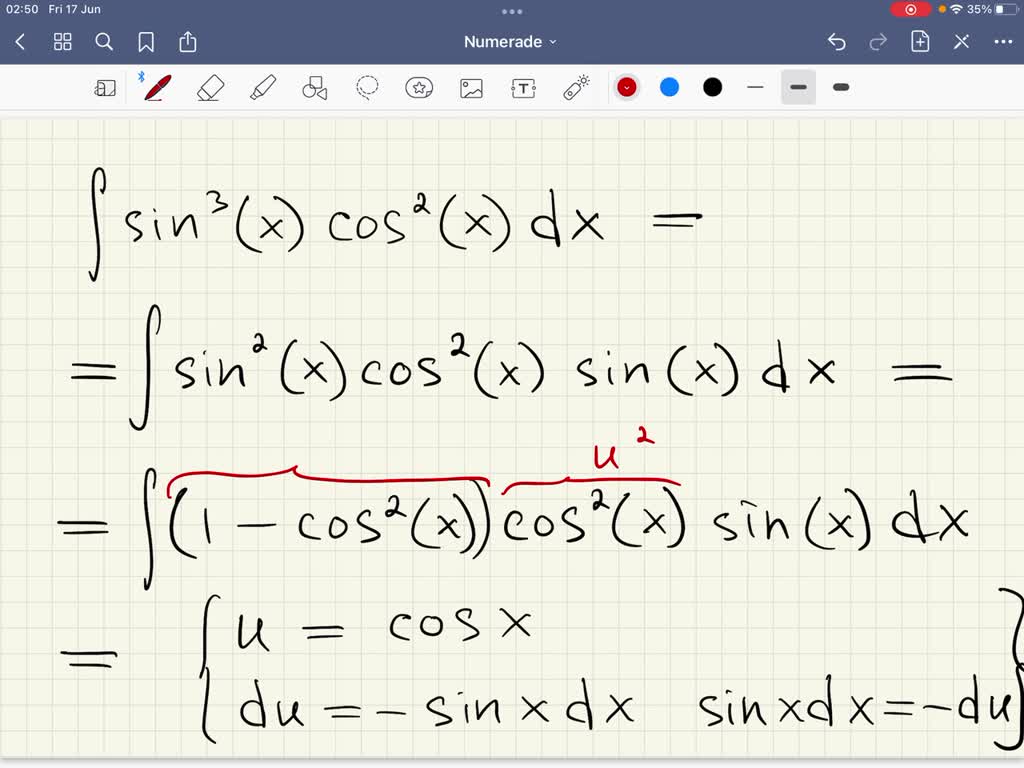 02:50 Fri 17 Jun 35%
Numerade
T
∫ sin³(x) cos²(x) dx =
= ∫ sin²(x) cos²(x) sin(x) dx =
u²
= ∫ (1 − cos²(x)) cos²(x) sin(x) dx
= { u = cos x }
du = − sin x dx sin x dx = − du